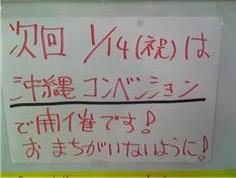 次回 1/14(祝)は
沖縄コンベンション
で開催です!
おまちがいないように!